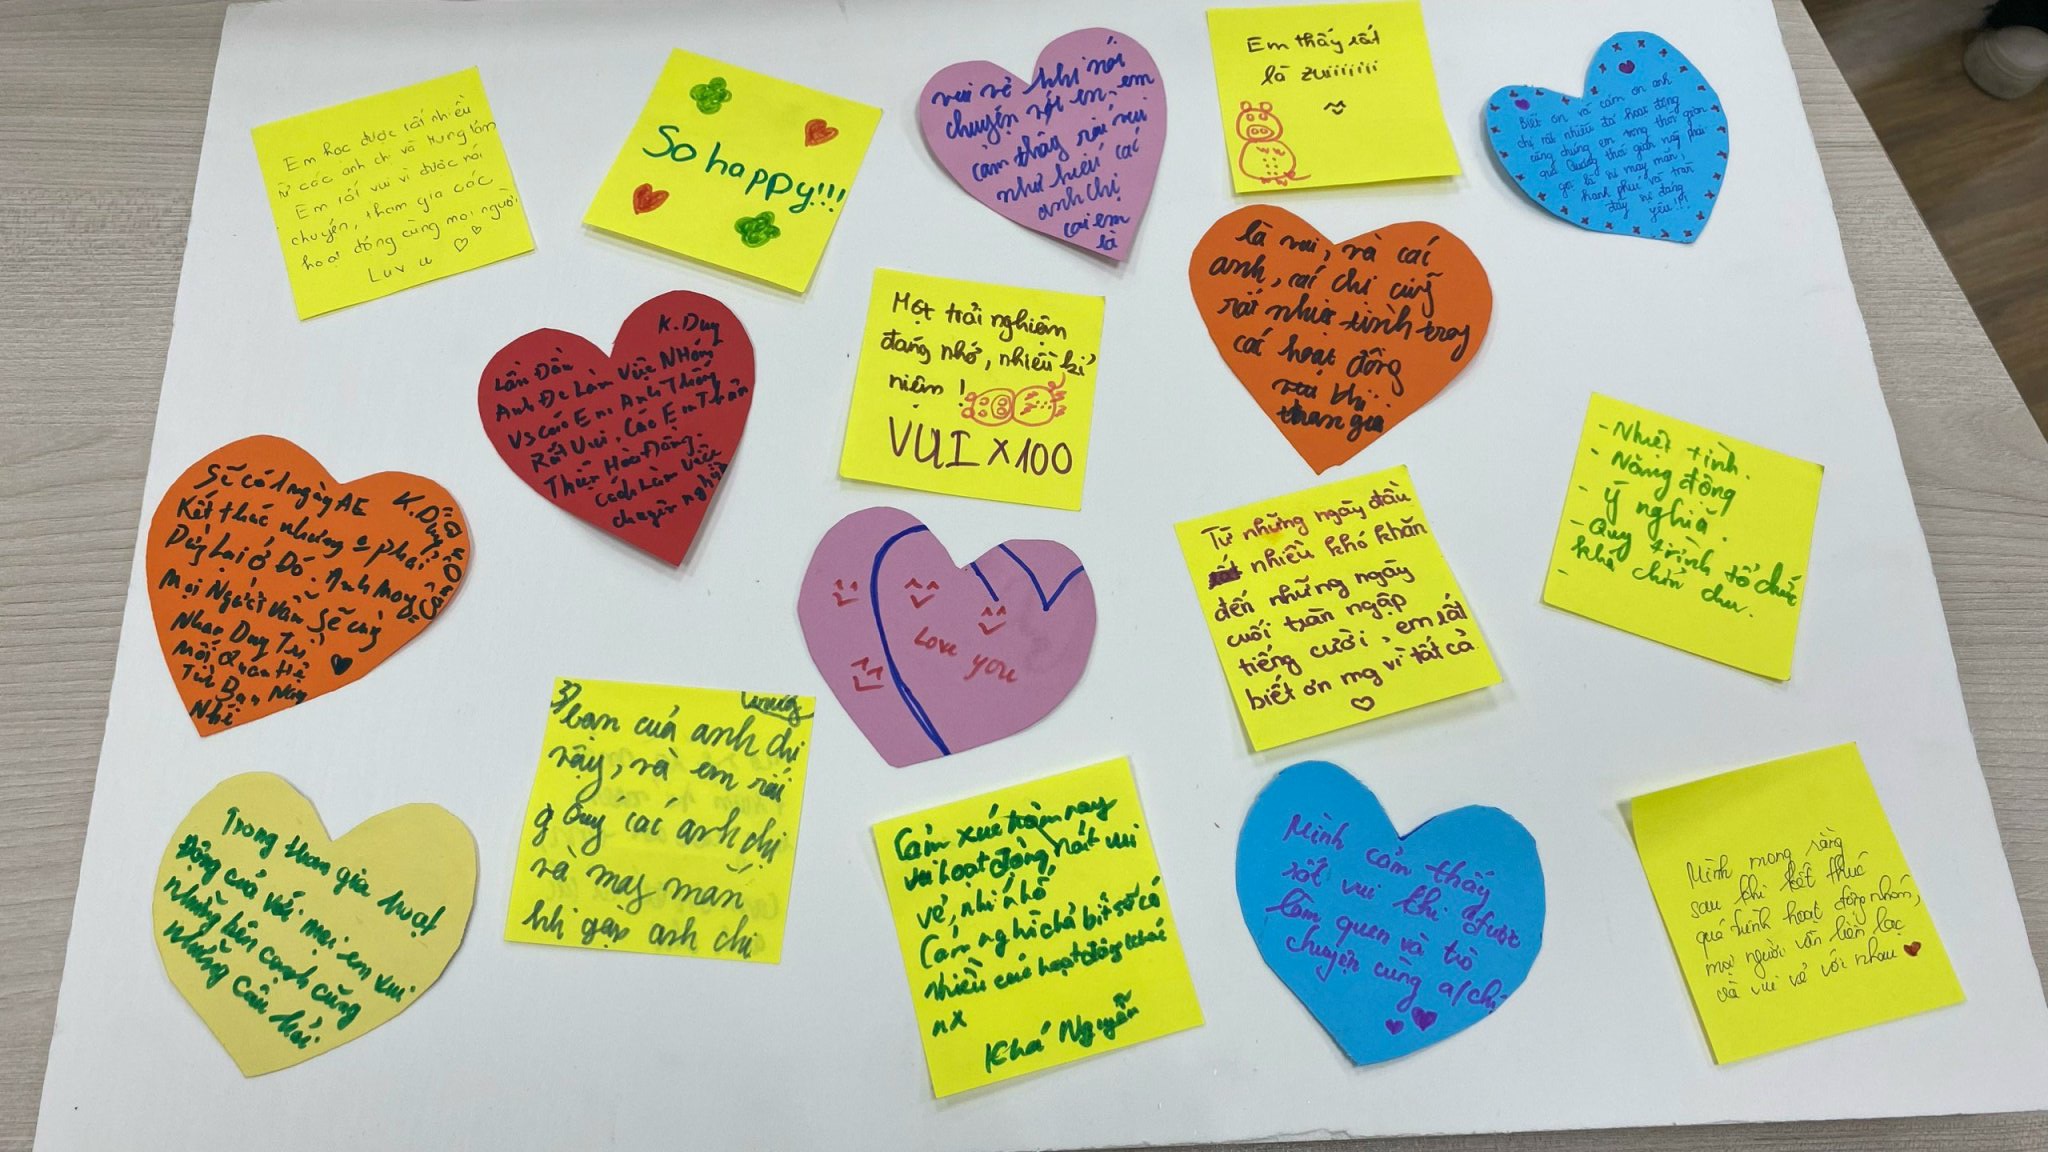 Em học được rất nhiều
từ các anh chị và trung tâm
Em rất vui vì được nói
chuyện, tham gia các
hoạt động cùng mọi người
Luv u
So happy!!!
vui vẻ khi nói
chuyện với em, em
cảm thấy rất vui
như hiểu các
anh chị
coi em
là
Em thấy rất
là zuiiiiiii
Biết ơn và cảm ơn anh
chị rất nhiều đã hoạt động
cùng chúng em trong thời gian
qua. Quãng thời gian này phải
gọi là hi may mắn,
hạnh phúc và trân
đầy
yêu!!!
K. Duy
Lần Đầu
Anh Đc Làm Việc Nhóm
Vs các Em. Anh Thấy
Rất Vui. Các Em Thân
Thiện Hòa Đồng.
Cách Làm Việc
chuyên nghiệp
Một trải nghiệm
đáng nhớ, nhiều kỉ
niệm!
VUI x 100
là vui, và các
anh, các chị cũng
rất nhiệt tình trog
các hoạt động
vui khi
tham gia
- Nhiệt tình
- Năng động
- Ý nghĩa.
- Quy trình tổ chức
khá chỉn chu.
-
Sẽ có 1 ngày AE
K. Duy
Kết thúc nhưng o phải
Dừng Lại ở Đó. Anh Mong
Mọi Người Vẫn Sẽ cùng
Nhau Duy Trì
Mối Quan Hệ
Tình Bạn Này
Nhé
Love you
Từ những ngày đầu
nhiều khó khăn
đến những ngày
cuối tràn ngập
tiếng cười, em rất
biết ơn mn vì tất cả
bạn của anh chị
vậy, và em rất
quý các anh chị
và may mắn
khi gặp anh chị
Trong tham gia hoạt
động của với mọi em vui
những bên cạnh cũng
những câu hỏi
Cảm xúc hôm nay
vui hoạt động rất vui
vẻ, nhí nhố
Cảm nghĩ chả biết sẽ có
nhiều các hoạt động khác
nx
Khá Nguyễn
Mình cảm thấy
rất vui khi được
làm quen và trò
chuyện cùng a/chị
Mình mong rằng
sau khi kết thúc
quá trình hoạt động nhóm,
mọi người vẫn liên lạc
và vui vẻ với nhau